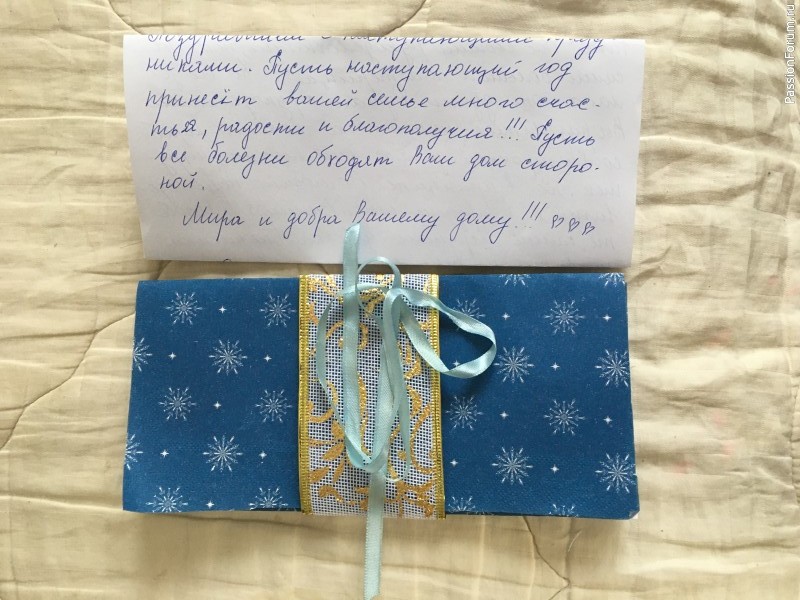 никами. Пусть наступающий год
принесёт вашей семье много счас-
тья, радости и благополучия!!! Пусть
все болезни обходят Ваш дом сторо-
ной.
Мира и добра Вашему дому!!! ♡♡♡
PassionForum.ru